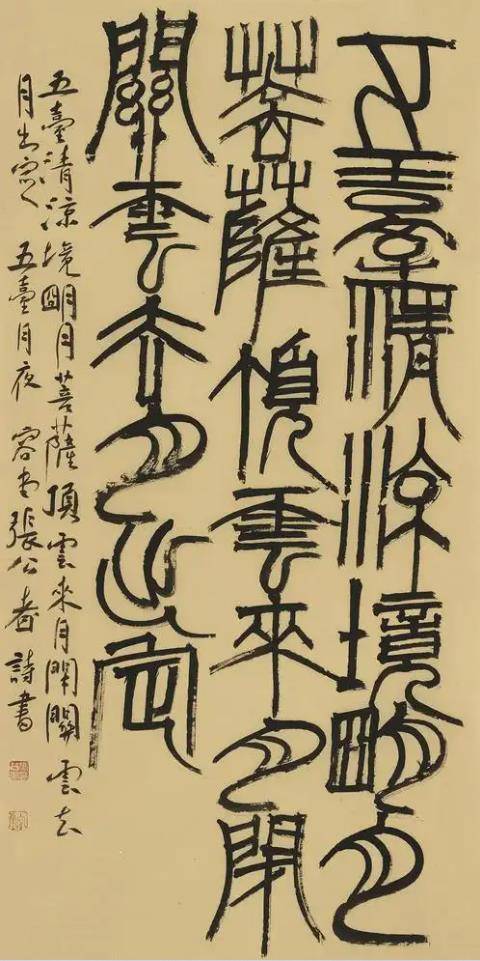 五臺清涼境朙月
菩薩頂雲來月閉
關雲去月出定
五臺清涼境朙月菩薩頂雲來月閉關雲去
月出定 五臺月夜 容堂張公者詩書